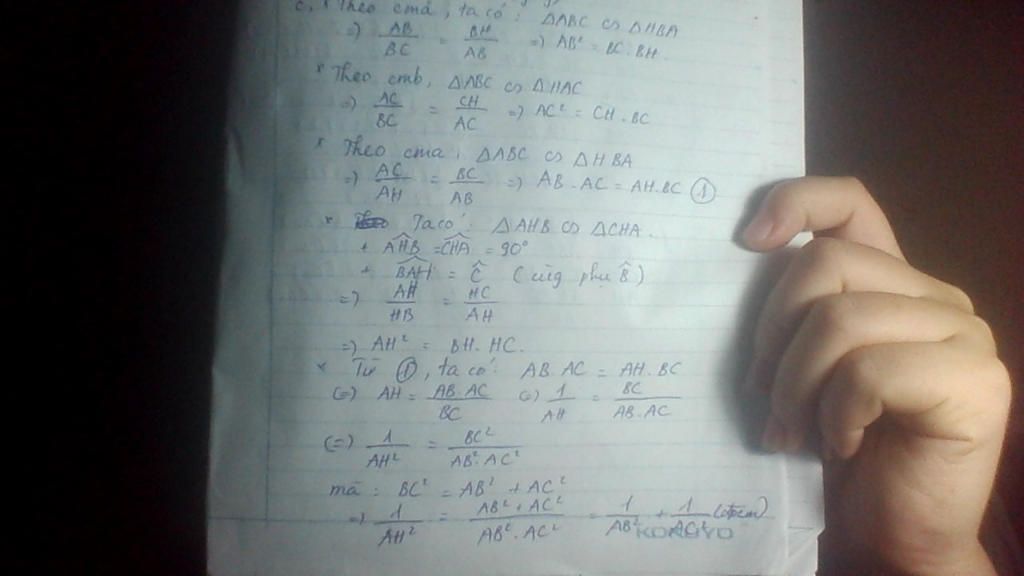 c, * Theo cma, ta có: ΔABC ∽ ΔHBA
=) AB/BC = BH/AB =) AB² = BC.BH.
* Theo cmb, ΔABC ∽ ΔHAC
=) AC/BC = CH/AC =) AC² = CH.BC
* Theo cma, ΔABC ∽ ΔHBA
=) AC/AH = BC/AB =) AB.AC = AH.BC ①
* Ta có: ΔAHB ∽ ΔCHA.
+ \widehat{AHB} = \widehat{CHA} = 90°
+ \widehat{BAH} = \widehat{C} (cùg phụ \widehat{B})
=) AH/HB = HC/AH
=) AH² = BH.HC.
* Từ ①, ta có: AB.AC = AH.BC
(=) AH = AB.AC/BC (=) 1/AH = BC/AB.AC
(=) 1/AH² = BC²/AB².AC²
mà: BC² = AB² + AC²
=) 1/AH² = AB² + AC²/AB².AC² = 1/AB² + 1/AC² (đpcm)
KOKUYO